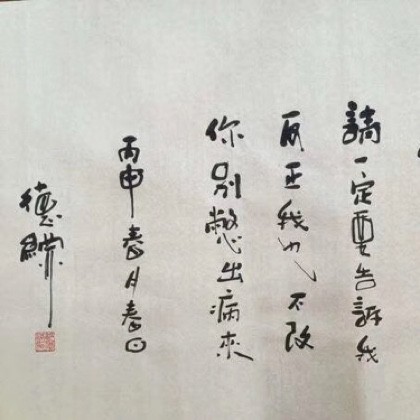 請一定要告訴我
反正我也不改
你別憋出病來
丙申春月春日
德綱